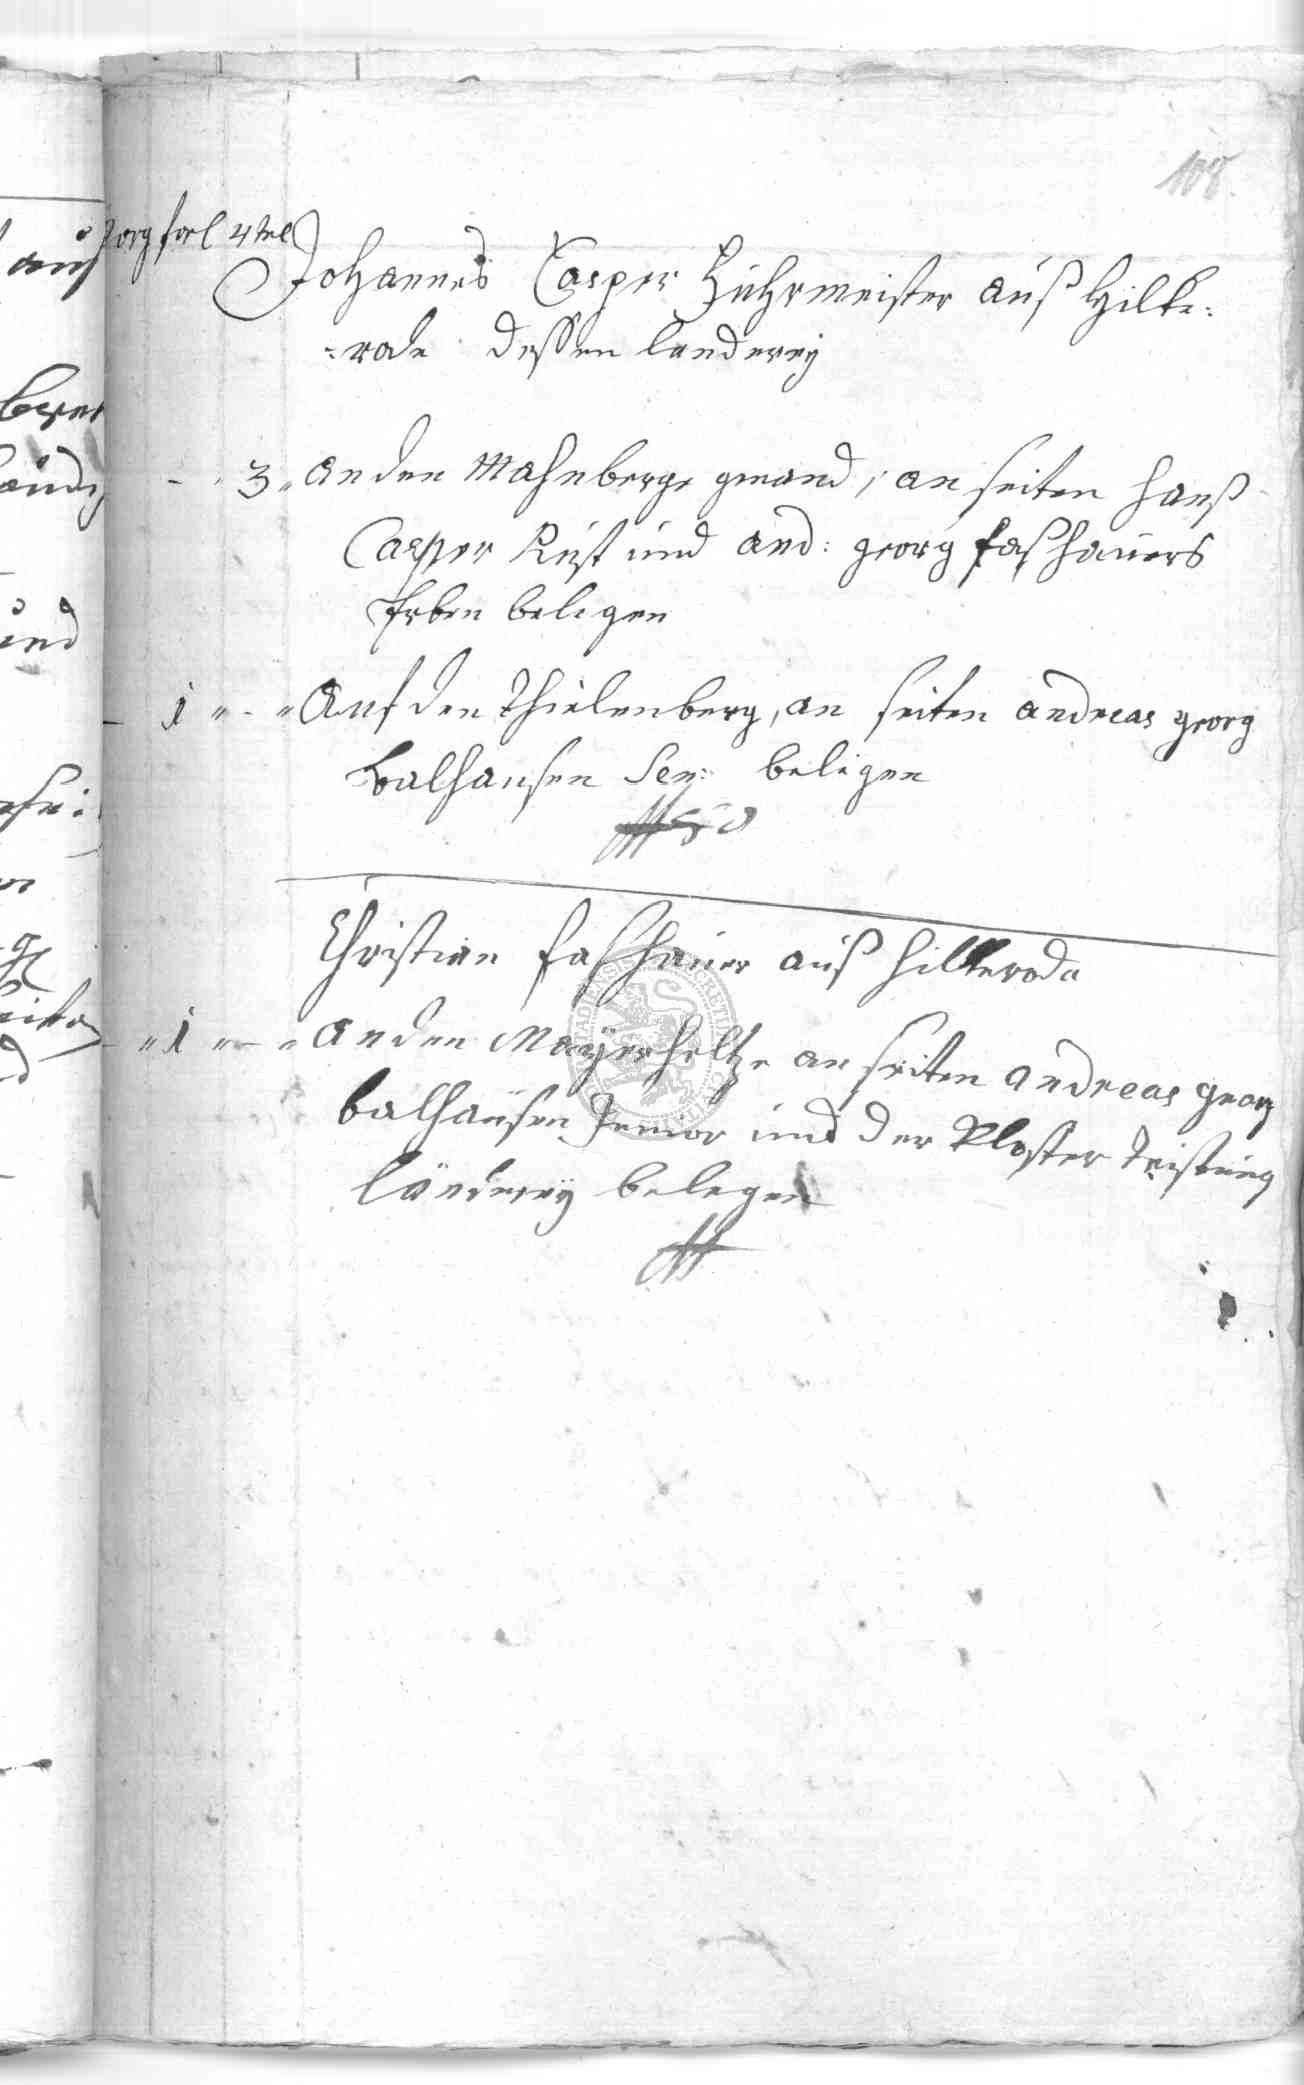 108.
Johannes Casper Zührmeister auß Hilke:
:rode dessen landerey
3 an den Mahnberge gwand, an seiten Hanß
Casper Rust und and: georg Faßhauers
Erben belegen
1 Auf den Thielenberg, an seiten andreas georg
Balhausen Sen: belegen
Christian Faßhauer auß Hilkerode
1 an den Mayerholtze an seiten andreas georg
balhausen Junior und der Kloster Teistung
länderey belegen